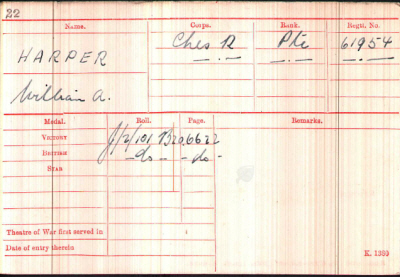 22
Name. Corps. Rank. Regtl. No.
HARPER Ches R Pte 61954
— . — — . — — . —
William A.
Medal. Roll. Page. Remarks.
Victory J/2/101 B20 6622
British - do - - do -
Star
Theatre of War first served in
Date of entry therein K. 1380